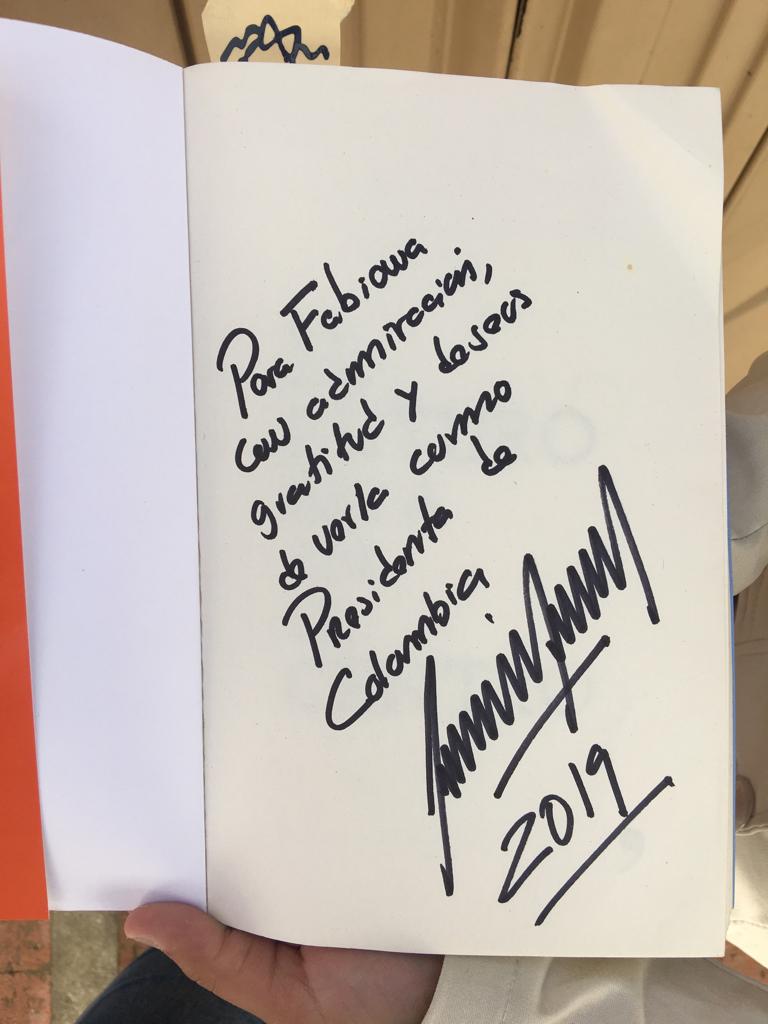 Para Fabiana
con admiración,
gratitud y deseos
de verla como
Presidenta de
Colombia
2019